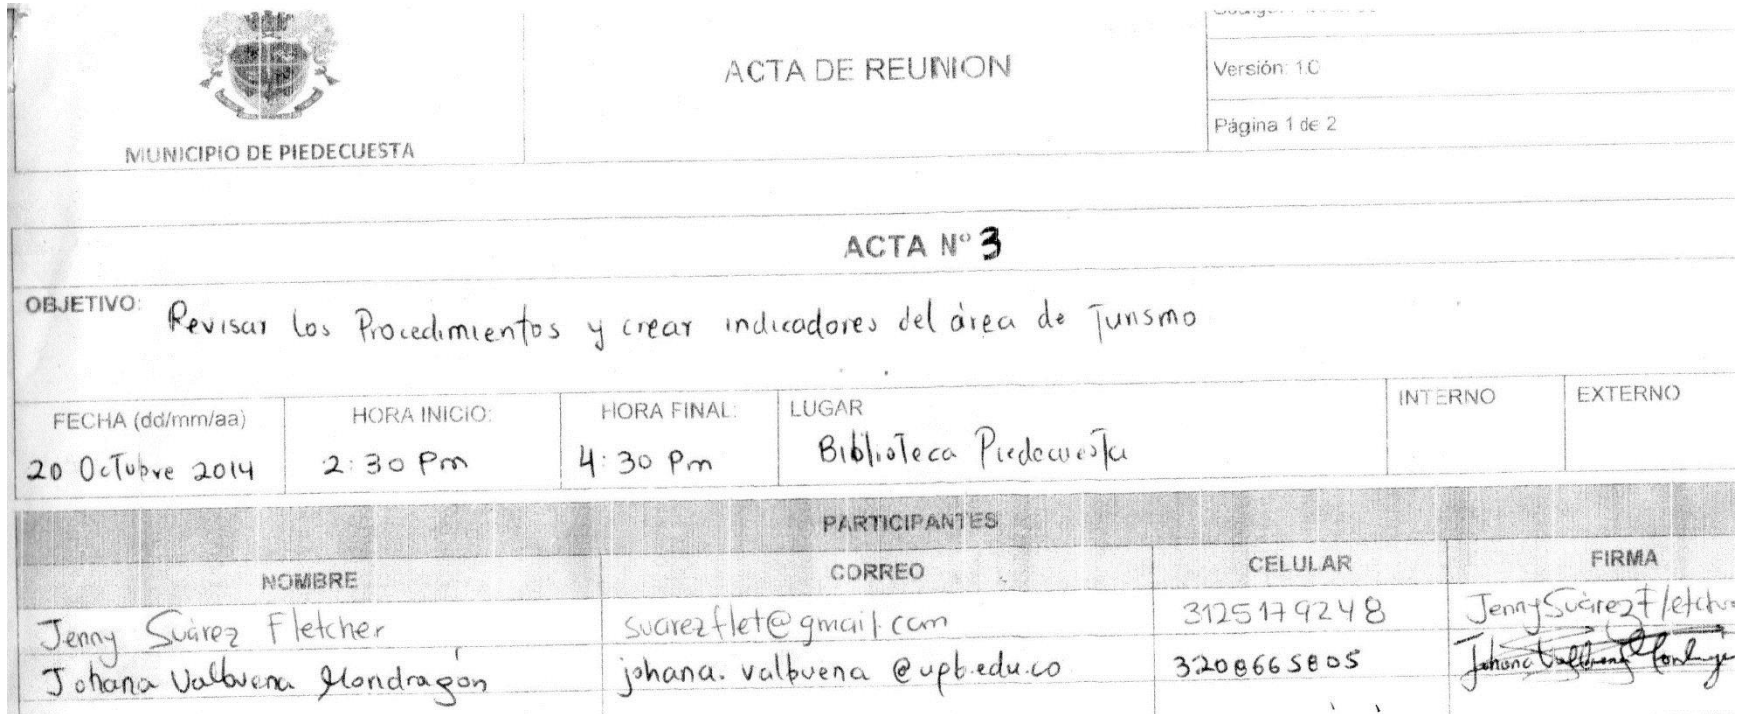 MUNICIPIO DE PIEDECUESTA
ACTA DE REUNION
Versión: 1.0
Página 1 de 2
ACTA Nº 3
OBJETIVO: Revisar los Procedimientos y crear indicadores del área de Turismo
FECHA (dd/mm/aa) HORA INICIO: HORA FINAL: LUGAR INTERNO EXTERNO
20 Octubre 2014 2:30 Pm 4:30 Pm Biblioteca Piedecuesta
PARTICIPANTES
NOMBRE CORREO CELULAR FIRMA
Jenny Suárez Fletcher suarezflet@gmail.com 3125179248 Jenny Suárez Fletcher
Johana Valbuena Mondragón johana.valbuena@upb.edu.co 3208665805